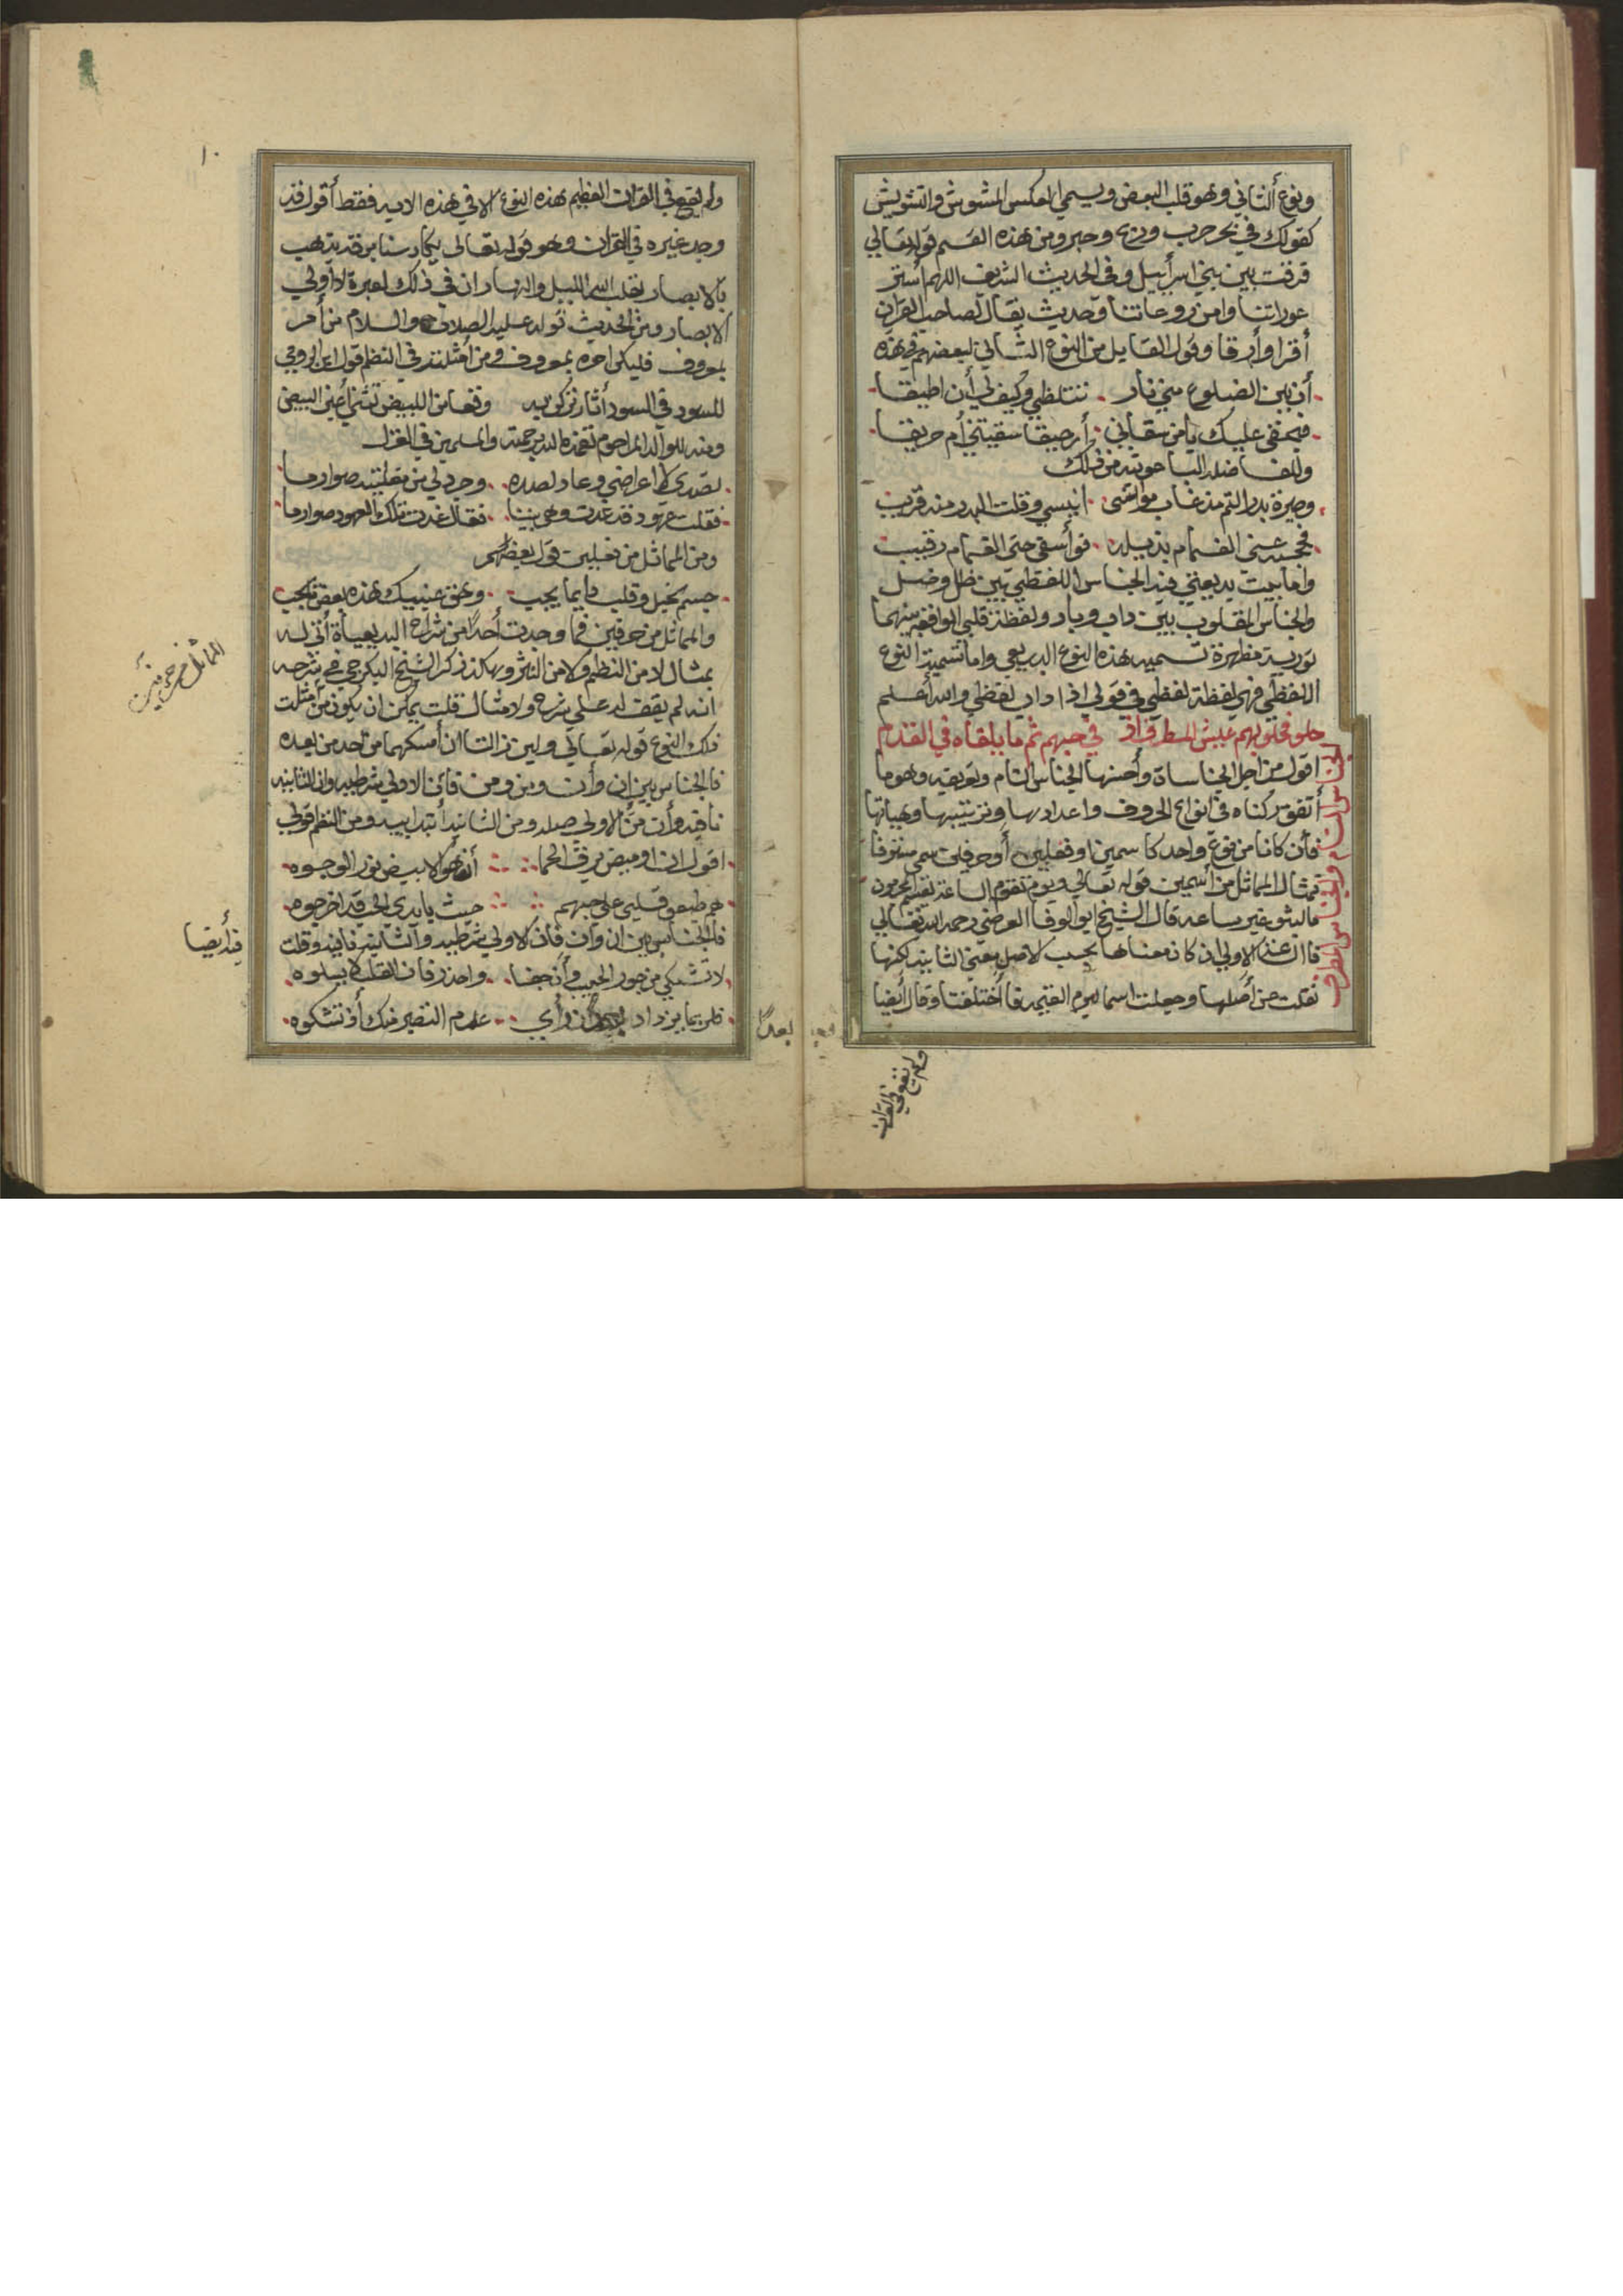 ونوع ألثاني وهو قلب البعض ويسمي العكس المشوش والتشويش
كقولك في بحر حرب وربح وحبر ومن هذه القسم قوله تعالي
فرقت بين بني اسرأييل وفي الحديث الشريف اللهم أستر
عوراتنا وامن روعاتنا وحديث يقال لصاحب القرأن
أقرا وأرقا وقول القايل من النوع الثاني لبعضهم في هذه
أن بين الضلوع مني نار . تتلظي وكيف لي أن اطيقا
فبحقي عليك يأمن سقاني . أرحيقا سقيتني أم حريقا
وللفاضله الباعونيه من ذلك
وصيرة بدر التم مذ غاب مؤانسي . انيسي وقلت البدر منه قريب
فحجبه عني الغمام بذيله . فوأسفي حتى الغمام رقيب
وامابيت بديعيتي فيه الجناس اللفظي بين ظل وضل
والجناس المقلوب بين داب وباد ولفظة قلبي الوافقه بينهما
تورية مظهرة تسميه هذه النوع البديعي واما تسمية النوع
اللفظي فهي لفظة لفظي في قولي اذا داب لفظي والله أعلم
حلو فحلو بهم عيش المطرف اذ في حبهم تم ما يلقاه في القدم
اقول من اجل الجناساة وأحسنها الجناس التام وتعريفه وهو ما
أتفق ركناه في انواع الحروف واعدادها وترتيبها وهيأتها
فأن كانا من نوع واحد كأسمين او فعلين أو حرفين سمي مستوفا
فمثال المماثل من أسمين قوله تعالي ويوم تقوم الساعة يقسم المجرمون
مالبثو غير ساعه قال الشيخ ابو الوفا العرضي رحمه الله تعالي
فاان عند الاولي اذ كان معناها بحسب الاصل معني الثانيه لكنها
نقلت من أصلها وجعلت اسما ليوم القيمه فا أختلفتا وقال أيضا
الجناس التام والجناس المطرف
ولم يقع في القران
١٠
ولم يقع في القران العظيم هذه النوع الا في هذه الايه فقط أقول قد
وجد غيره في القران وهو قوله تعالى يكاد سنا برقه يذهب
بالابصار يقلب الله الليل والنهار ان في ذلك لعبرة لاأولي
الابصار ومن الحديث قوله عليه الصلاة والسلام من أمر
بمعروف فليكن امره بمعروف ومن أمثلته في النظم قول ابن الرومي
للسود في السود أثار تركن به وقعا من البيض تثني أعين البيض
ومنه للوالد المرحوم تغمذه الله برحمته والمسلمين في الغزل
تصدى لاعراضي وعاد لصده . وجرد لي من مقلتيه صوارما
فقلت عهود قد غدت وهي بيننا . فقال غدت تلك العهود صوارما
ومن المماثل من فعلين قول بعضهم
جسم نحيل وقلب دايما يجب . وحق عينيك هذه بعض مايجب
والمماثل من حرفين فما وجدت أحداً من شراح البديعيأة أتي له
بمثال لا من النظم ولا من النثر وهكذ ذكر الشيخ البكرجي في شرحه
انه لم يقف له علي شرح ولا مثال قلت يمكن ان يكون من أمثلت
ذلك النوع قوله تعالي ولين زالتا ان أمسكهما من أحد من بعده
فالجناس بين ان وأن ومن ومن فأن الاولي شرطيه وان الثانيه
نافيه وأن من الاولي صله ومن الثانيه أبتدابيه ومن النظم قولي
اقول ان اوميض برق الحما أن هو الا بيض نور الوجوه
هم طبعو قلبي علي حبهم حيث بايدي الحي قد اخرجوه
فالجناس بين ان وان فأن الاولي شرطيه والثانيه نافيه وقلت
لا تشتكي من جور الحبيب وأن جفا . واحذر فان القلب لا يسلوه
فلربما يزداد ان رأي . عدم التصبر منك أذ تشكوه
المماثل من حرفين
فيه أيضا
بعداً